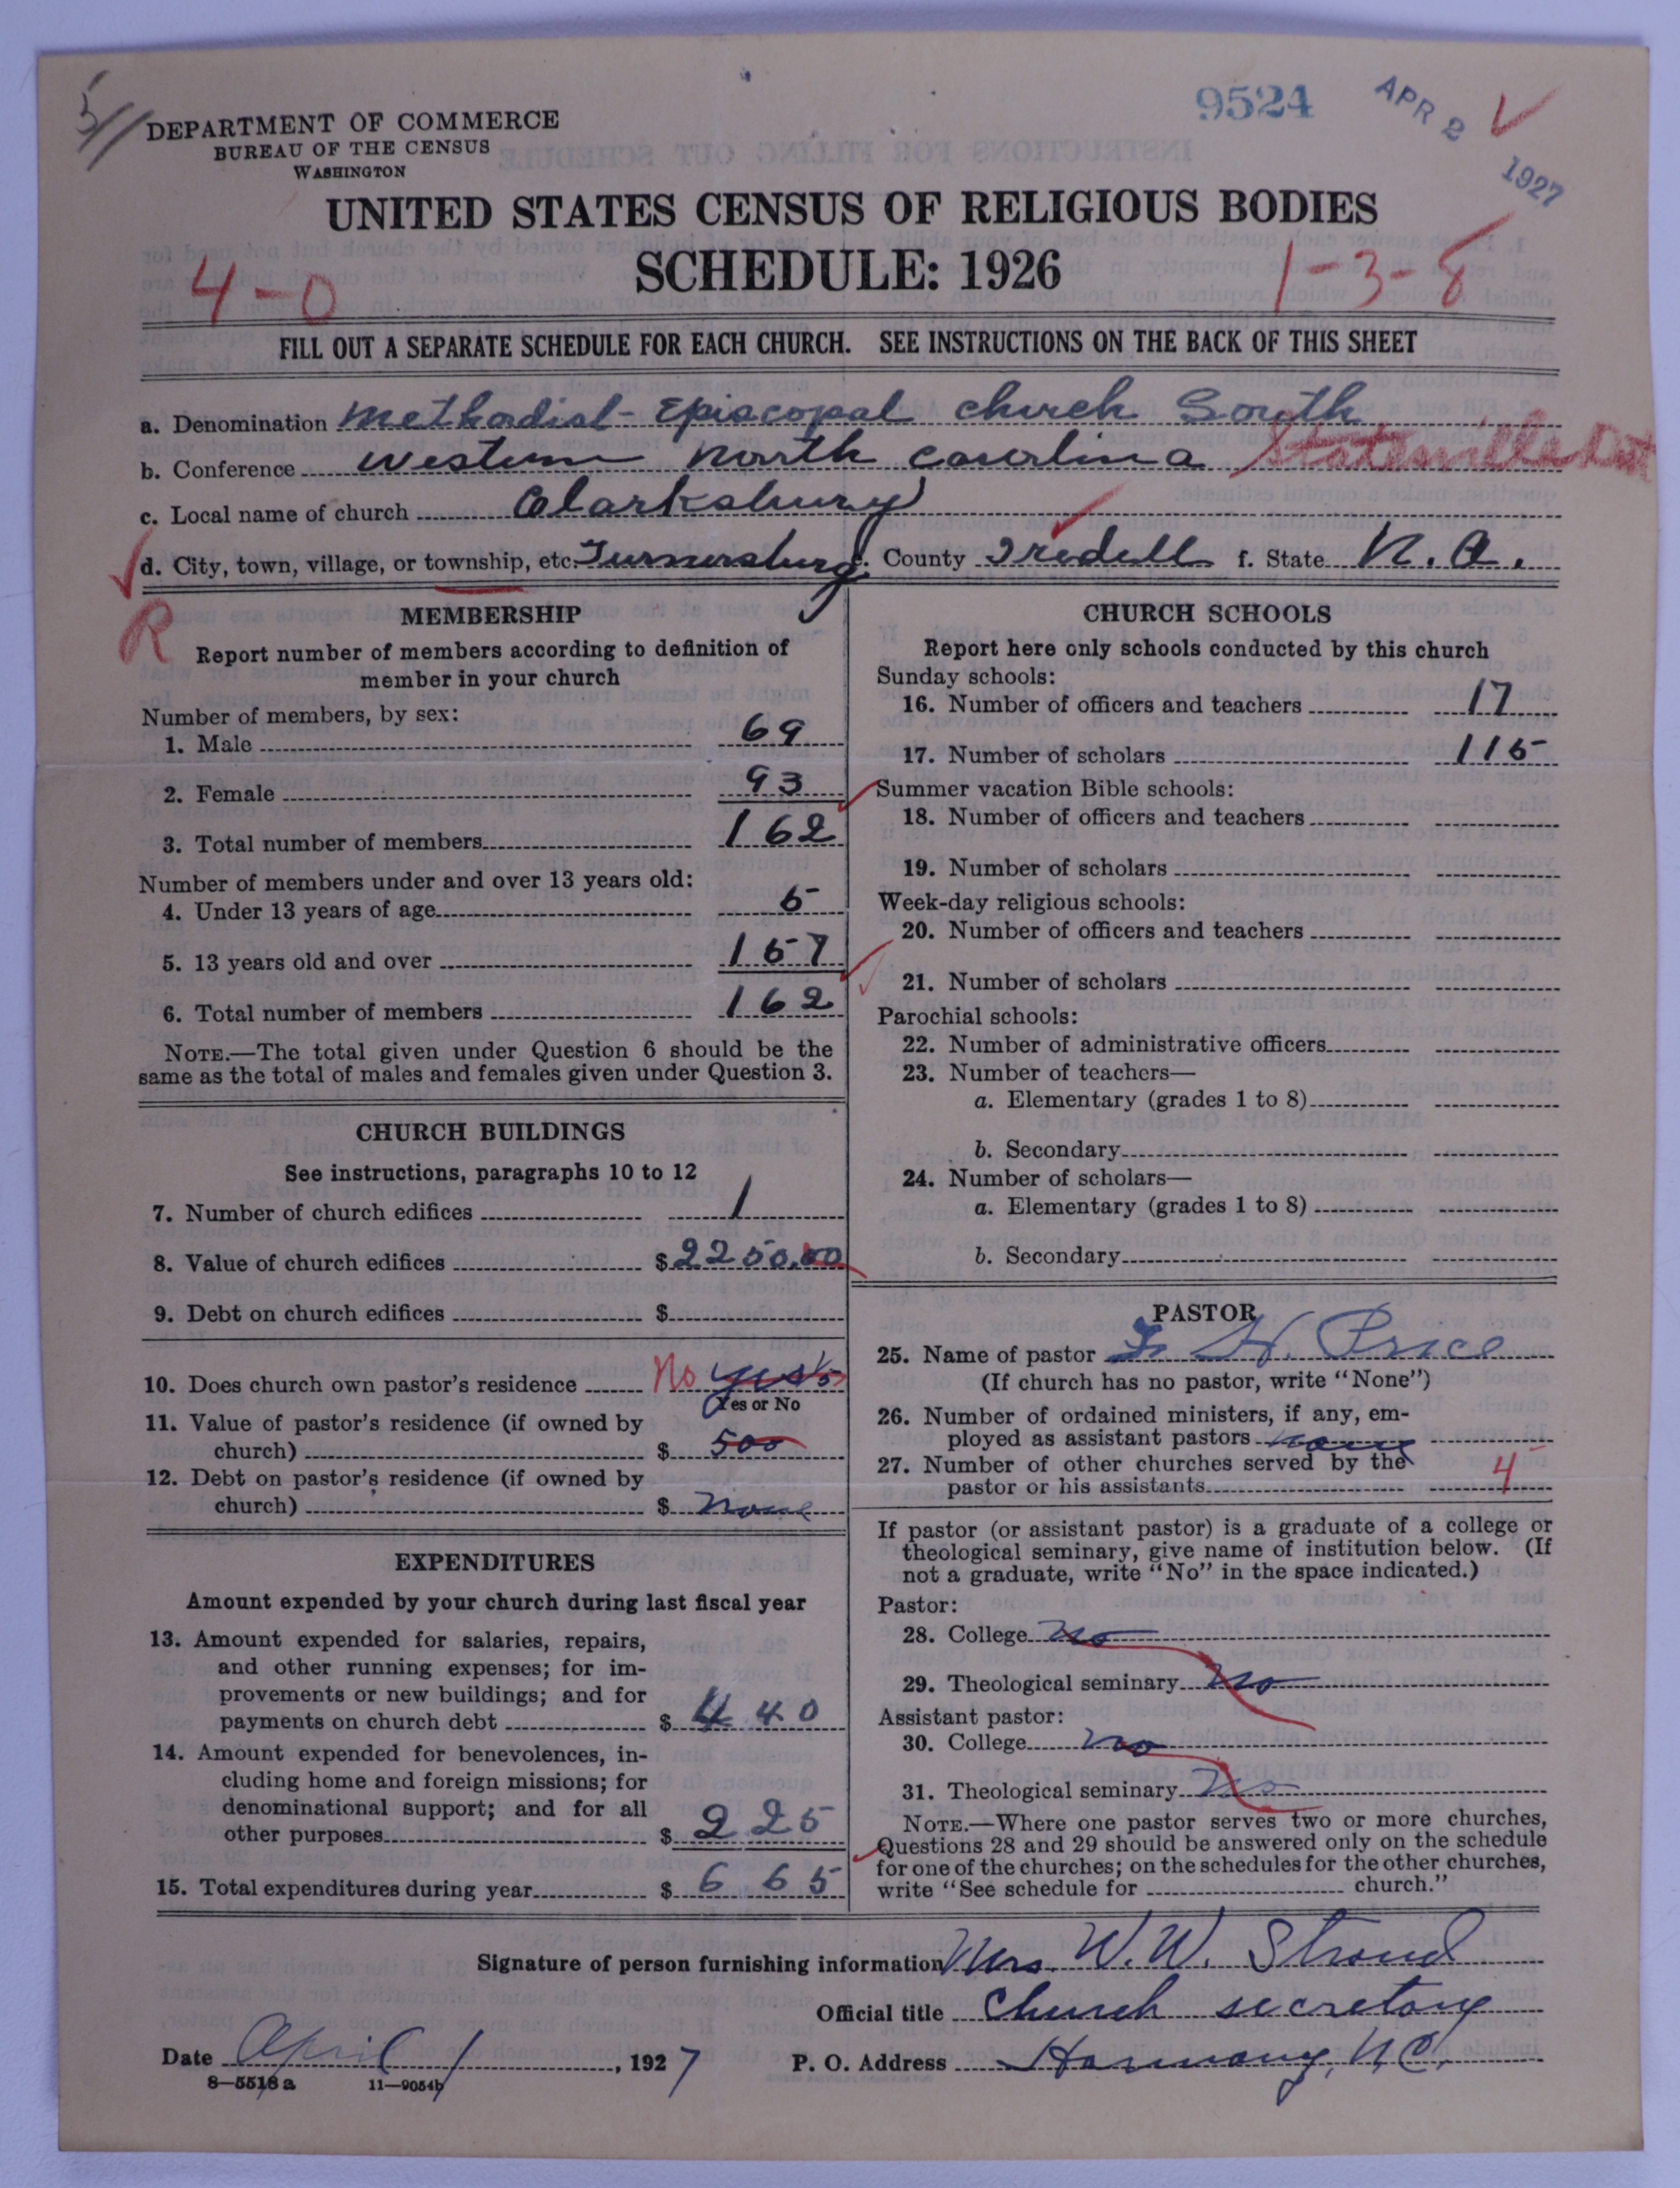 5
9524
APR 2 1927
DEPARTMENT OF COMMERCE
BUREAU OF THE CENSUS
WASHINGTON
UNITED STATES CENSUS OF RELIGIOUS BODIES
SCHEDULE: 1926
4-0
1-3-8
FILL OUT A SEPARATE SCHEDULE FOR EACH CHURCH. SEE INSTRUCTIONS ON THE BACK OF THIS SHEET
a. Denomination Methodist Episcopal church South
b. Conference Western North Carolina Statesville Dist
c. Local name of church Clarksbury
d. City, town, village, or township, etc. Turnersburg e. County Iredell f. State N. C.
R
MEMBERSHIP
Report number of members according to definition of
member in your church
Number of members, by sex:
1. Male 69
2. Female 93
3. Total number of members 162
Number of members under and over 13 years old:
4. Under 13 years of age 5
5. 13 years old and over 157
6. Total number of members 162
NOTE.—The total given under Question 6 should be the
same as the total of males and females given under Question 3.
CHURCH BUILDINGS
See instructions, paragraphs 10 to 12
7. Number of church edifices 1
8. Value of church edifices $2250.00
9. Debt on church edifices $
10. Does church own pastor's residence No yes
Yes or No
11. Value of pastor's residence (if owned by
church) $ 500
12. Debt on pastor's residence (if owned by
church) $ none
EXPENDITURES
Amount expended by your church during last fiscal year
13. Amount expended for salaries, repairs,
and other running expenses; for im-
provements or new buildings; and for
payments on church debt $ 440
14. Amount expended for benevolences, in-
cluding home and foreign missions; for
denominational support; and for all
other purposes $ 225
15. Total expenditures during year $ 665
CHURCH SCHOOLS
Report here only schools conducted by this church
Sunday schools:
16. Number of officers and teachers 17
17. Number of scholars 115
Summer vacation Bible schools:
18. Number of officers and teachers
19. Number of scholars
Week-day religious schools:
20. Number of officers and teachers
21. Number of scholars
Parochial schools:
22. Number of administrative officers
23. Number of teachers—
a. Elementary (grades 1 to 8)
b. Secondary
24. Number of scholars—
a. Elementary (grades 1 to 8)
b. Secondary
PASTOR
25. Name of pastor H. Price
(If church has no pastor, write "None")
26. Number of ordained ministers, if any, em-
ployed as assistant pastors none
27. Number of other churches served by the
pastor or his assistants 4
If pastor (or assistant pastor) is a graduate of a college or
theological seminary, give name of institution below. (If
not a graduate, write "No" in the space indicated.)
Pastor:
28. College no
29. Theological seminary no
Assistant pastor:
30. College no
31. Theological seminary no
NOTE.—Where one pastor serves two or more churches,
Questions 28 and 29 should be answered only on the schedule
for one of the churches; on the schedules for the other churches,
write "See schedule for church."
Signature of person furnishing information Mrs. W. W. Stroud
Official title Church secretary
Date April 1, 1927 P. O. Address Harmony, N.C.
8—5518 a 11—9054b